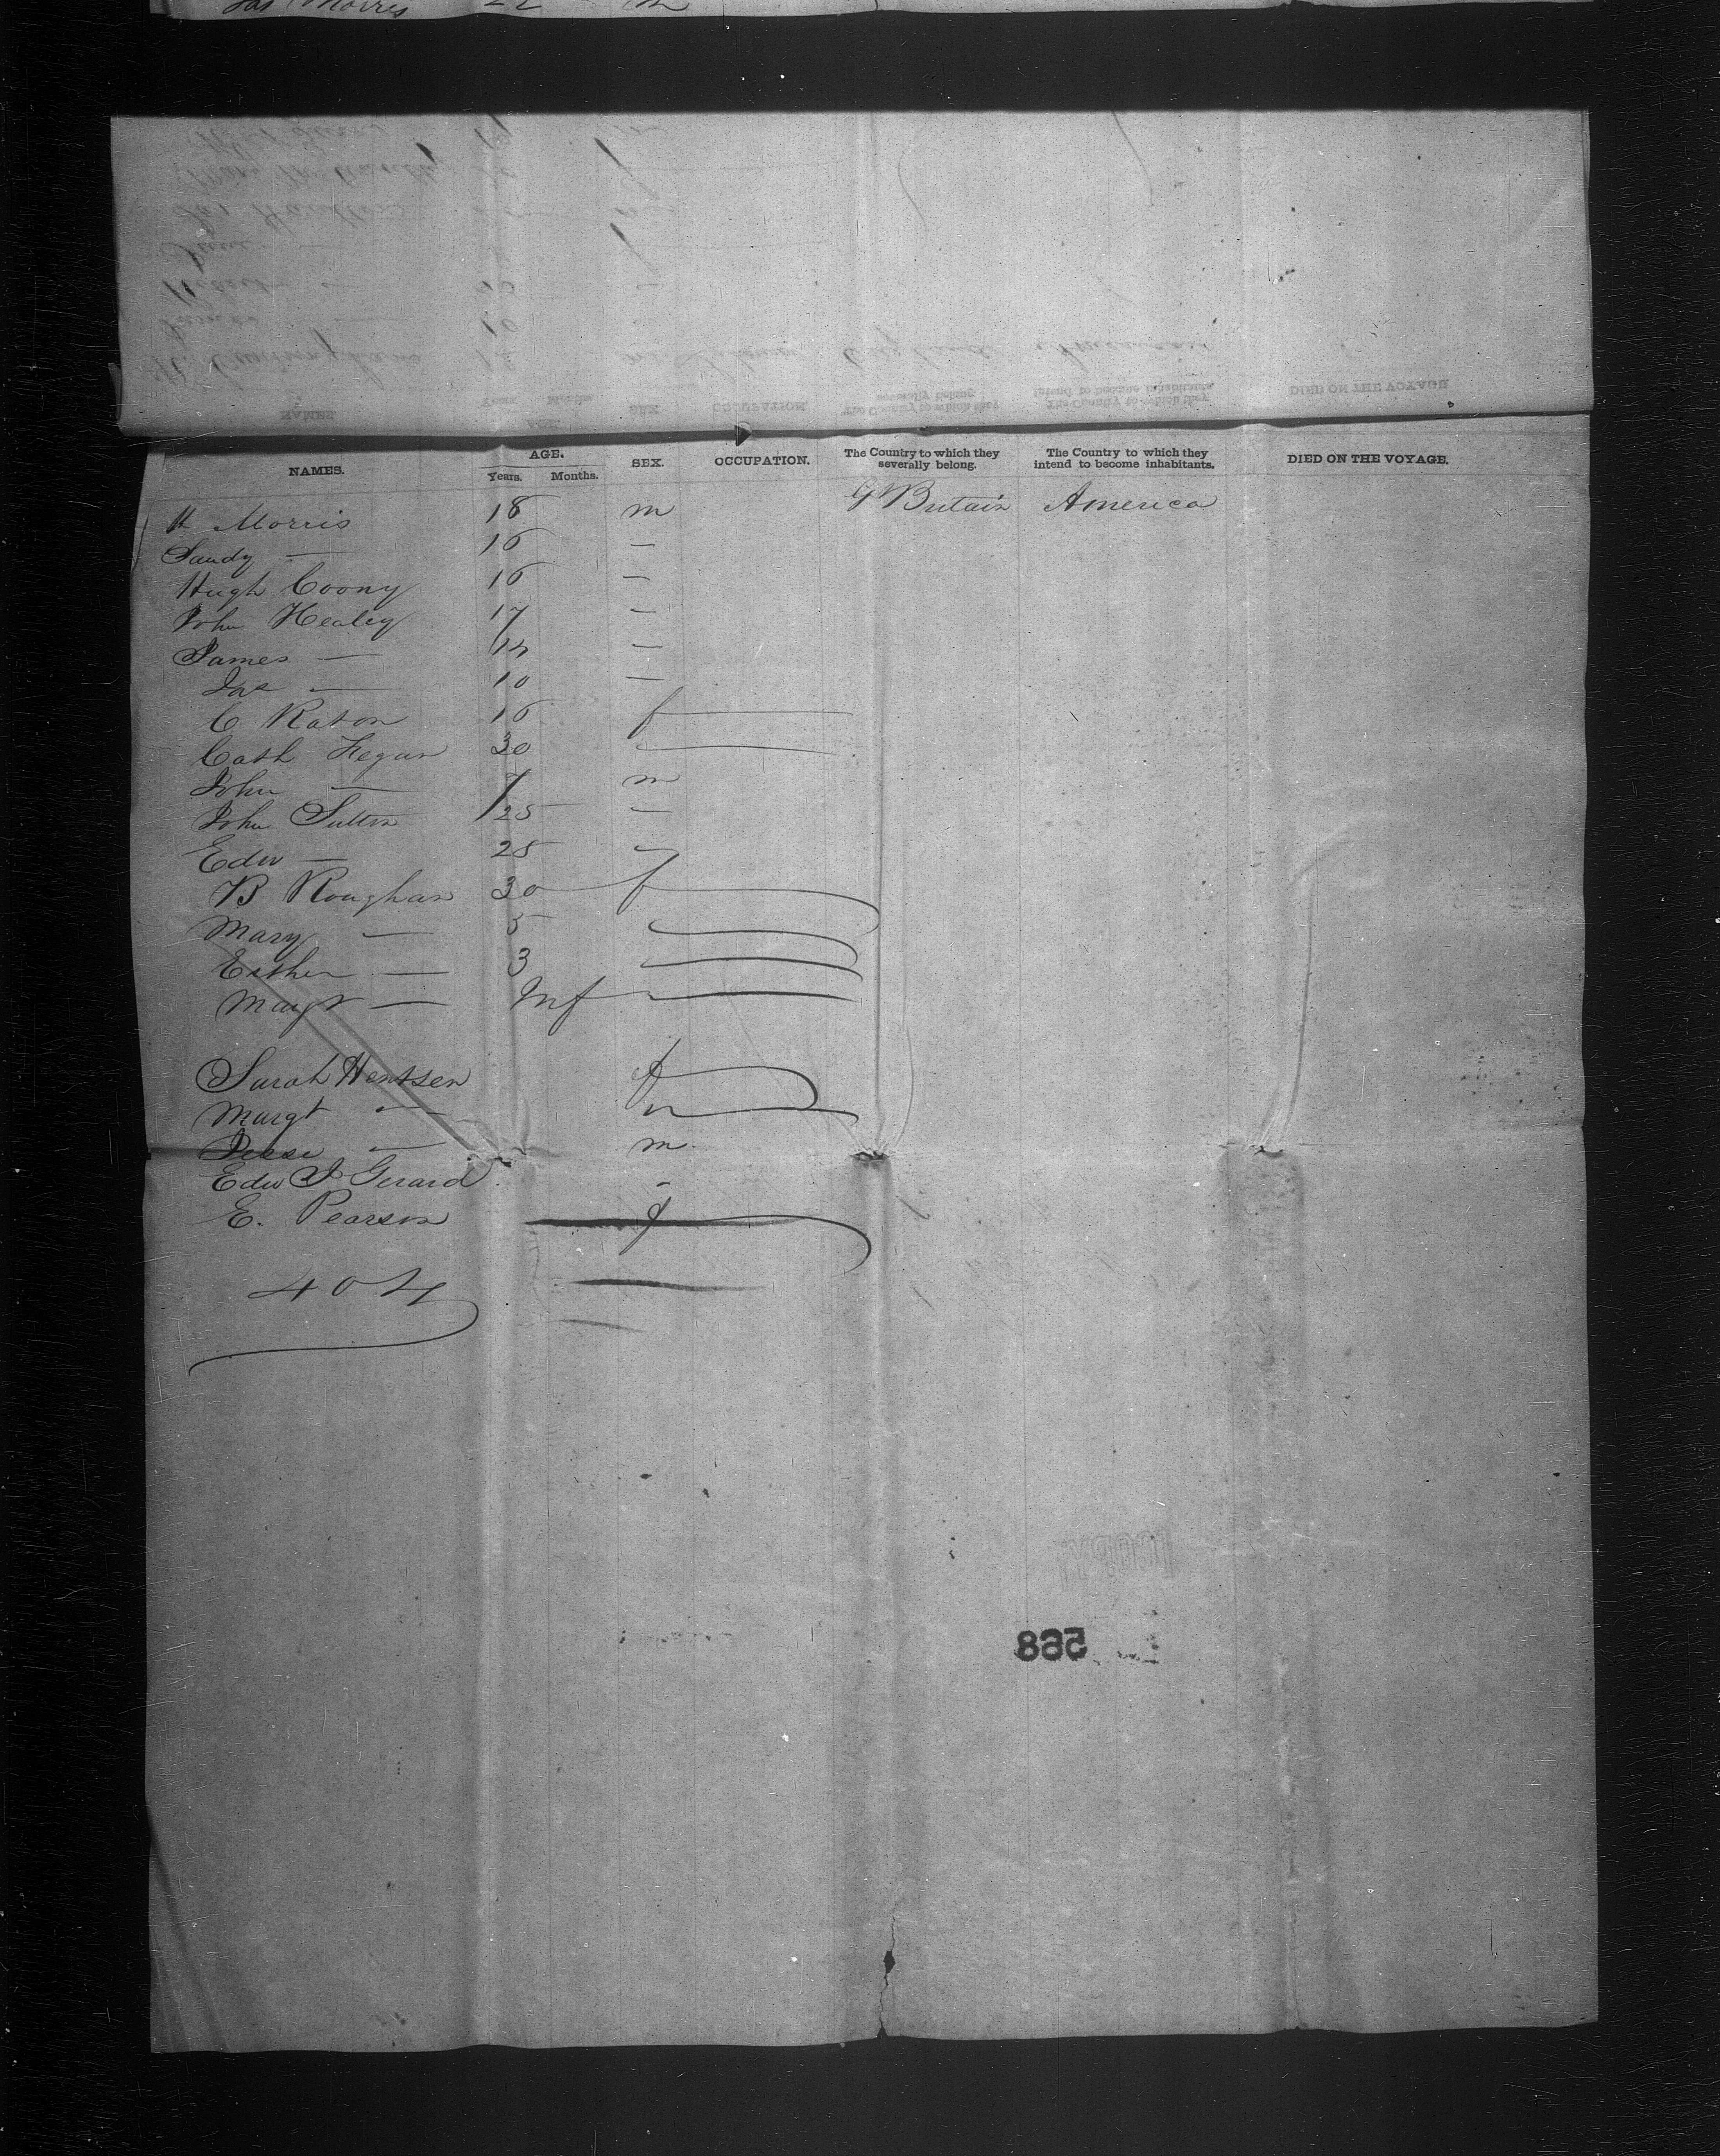 Jas Morris 22 m
NAMES. AGE. SEX. OCCUPATION. The Country to which they severally belong. The Country to which they intend to become inhabitants. DIED ON THE VOYAGE.
Years. Months.
H Morris 18 m Gt Britain America
Sandy — 16 —
Hugh Coony 16 —
John Healey 17 —
James — 14 —
Jas — 10 —
C Raton 16 f
Cath Fegan 30
John — 7 m
John Sutton 25 —
Edw — 25 —
B Roughan 30 f
Mary — 5
Esther — 3
Margt — Inf
Sarah Hentsen f
Margt —
Jesse — m
Edw J Gerard -
E. Pearson f
404
568